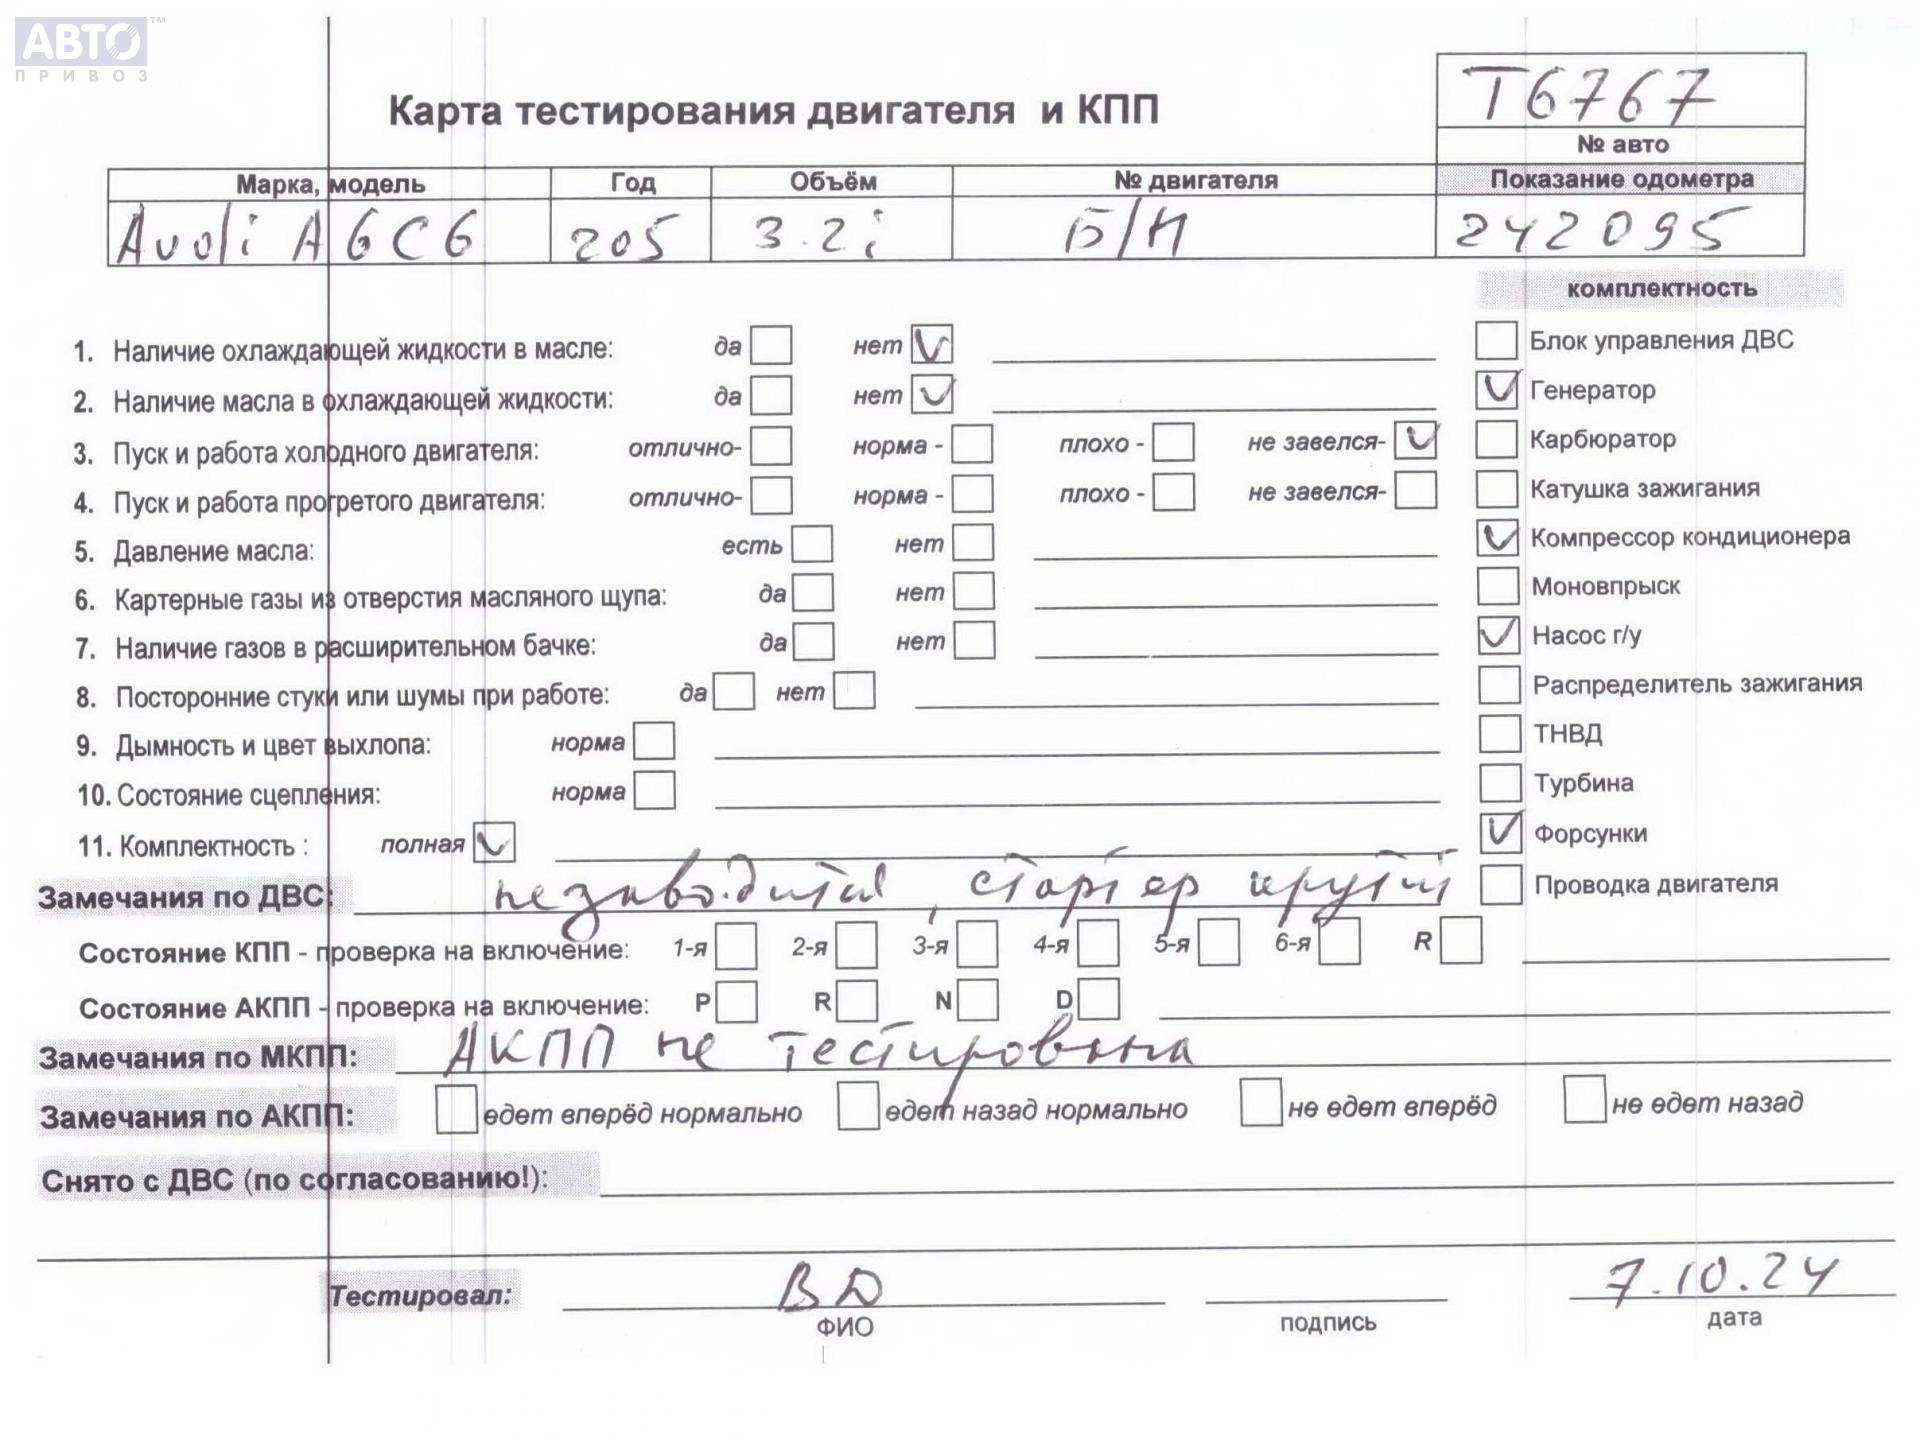 АВТО™
ПРИВОЗ
Т6767
Карта тестирования двигателя и КПП
№ авто
Марка, модель Год Объём № двигателя Показание одометра
Audi A6C6 205 3.2i Б/Н 242095
комплектность
1. Наличие охлаждающей жидкости в масле: да нет ✓
Блок управления ДВС
2. Наличие масла в охлаждающей жидкости: да нет ✓
✓ Генератор
3. Пуск и работа холодного двигателя: отлично- норма - плохо - не завелся- ✓
Карбюратор
4. Пуск и работа прогретого двигателя: отлично- норма - плохо - не завелся-
Катушка зажигания
5. Давление масла: есть нет
✓ Компрессор кондиционера
6. Картерные газы из отверстия масляного щупа: да нет
Моновпрыск
7. Наличие газов в расширительном бачке: да нет
✓ Насос г/у
8. Посторонние стуки или шумы при работе: да нет
Распределитель зажигания
9. Дымность и цвет выхлопа: норма
ТНВД
10. Состояние сцепления: норма
Турбина
11. Комплектность : полная ✓
✓ Форсунки
Замечания по ДВС: незаводится, стартер крутит
Проводка двигателя
Состояние КПП - проверка на включение: 1-я 2-я 3-я 4-я 5-я 6-я R
Состояние АКПП - проверка на включение: P R N D
Замечания по МКПП: АКПП не тестирована
Замечания по АКПП: едет вперёд нормально едет назад нормально не едет вперёд не едет назад
Снято с ДВС (по согласованию!):
Тестировал: ВД 7.10.24
ФИО подпись дата